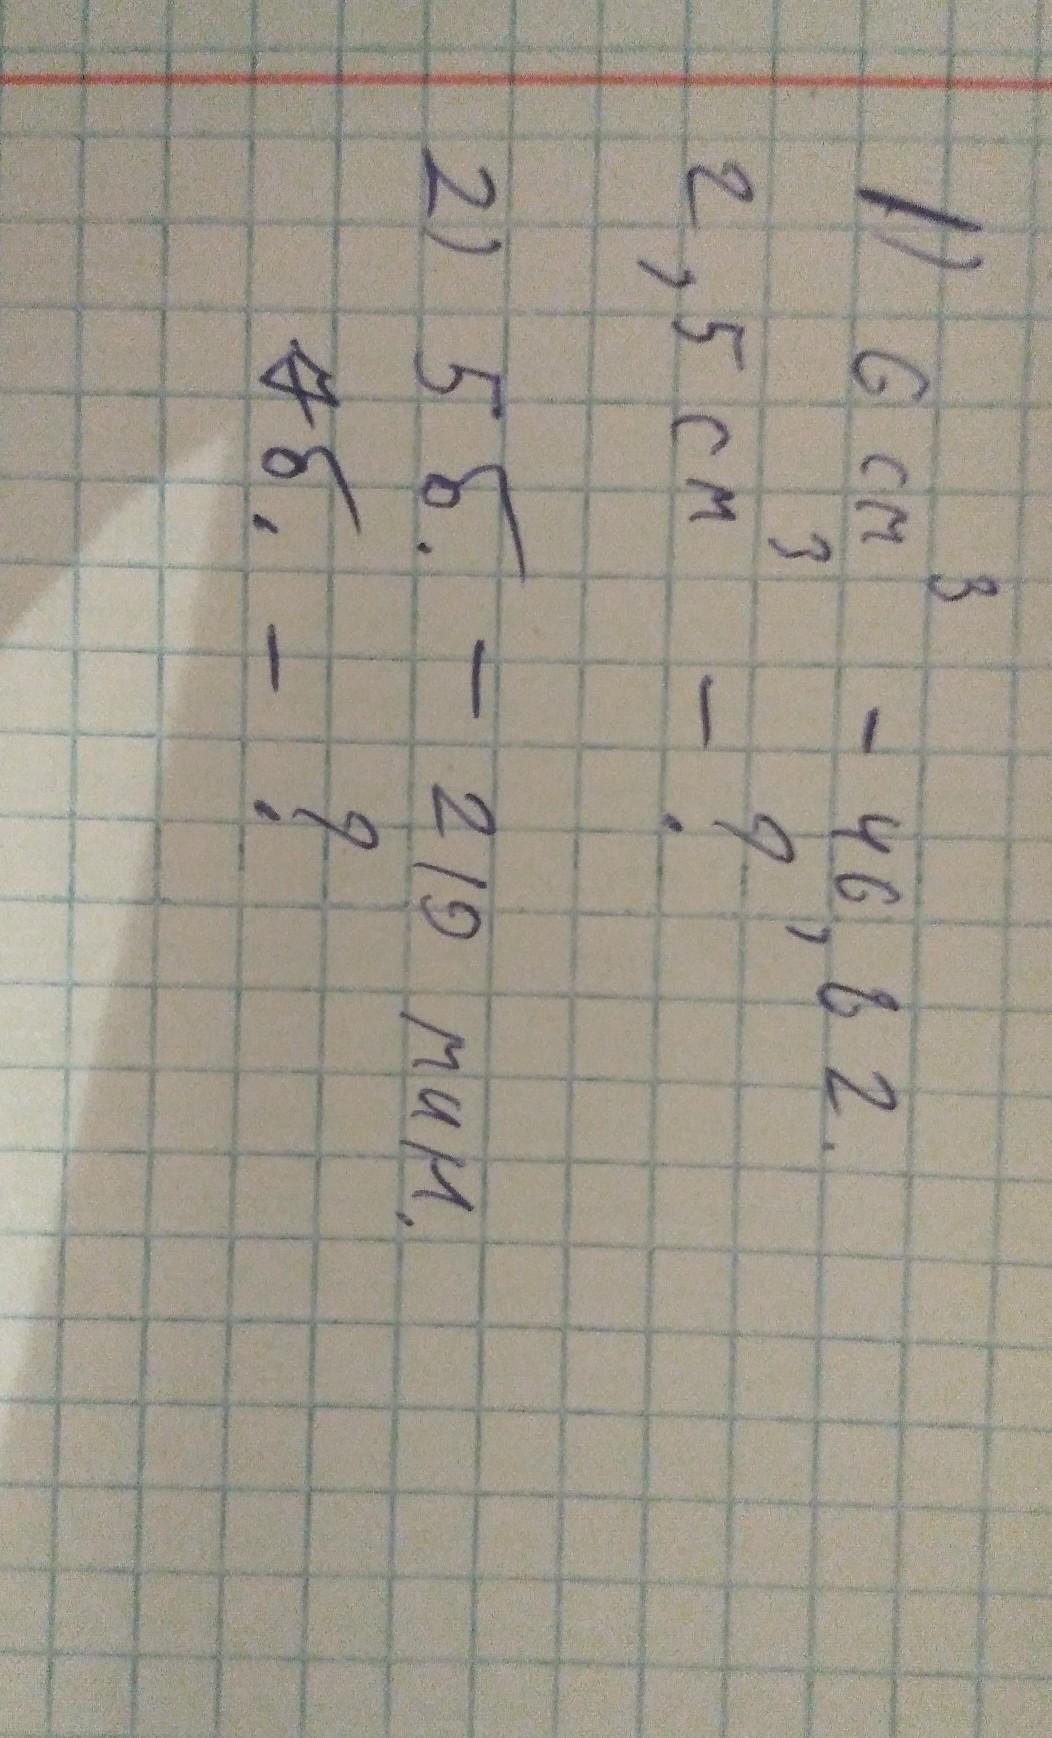 1) 6 см³ - 46,8 г.
2,5 см³ - ?
2) 5 б. - 210 мин.
б. - ?